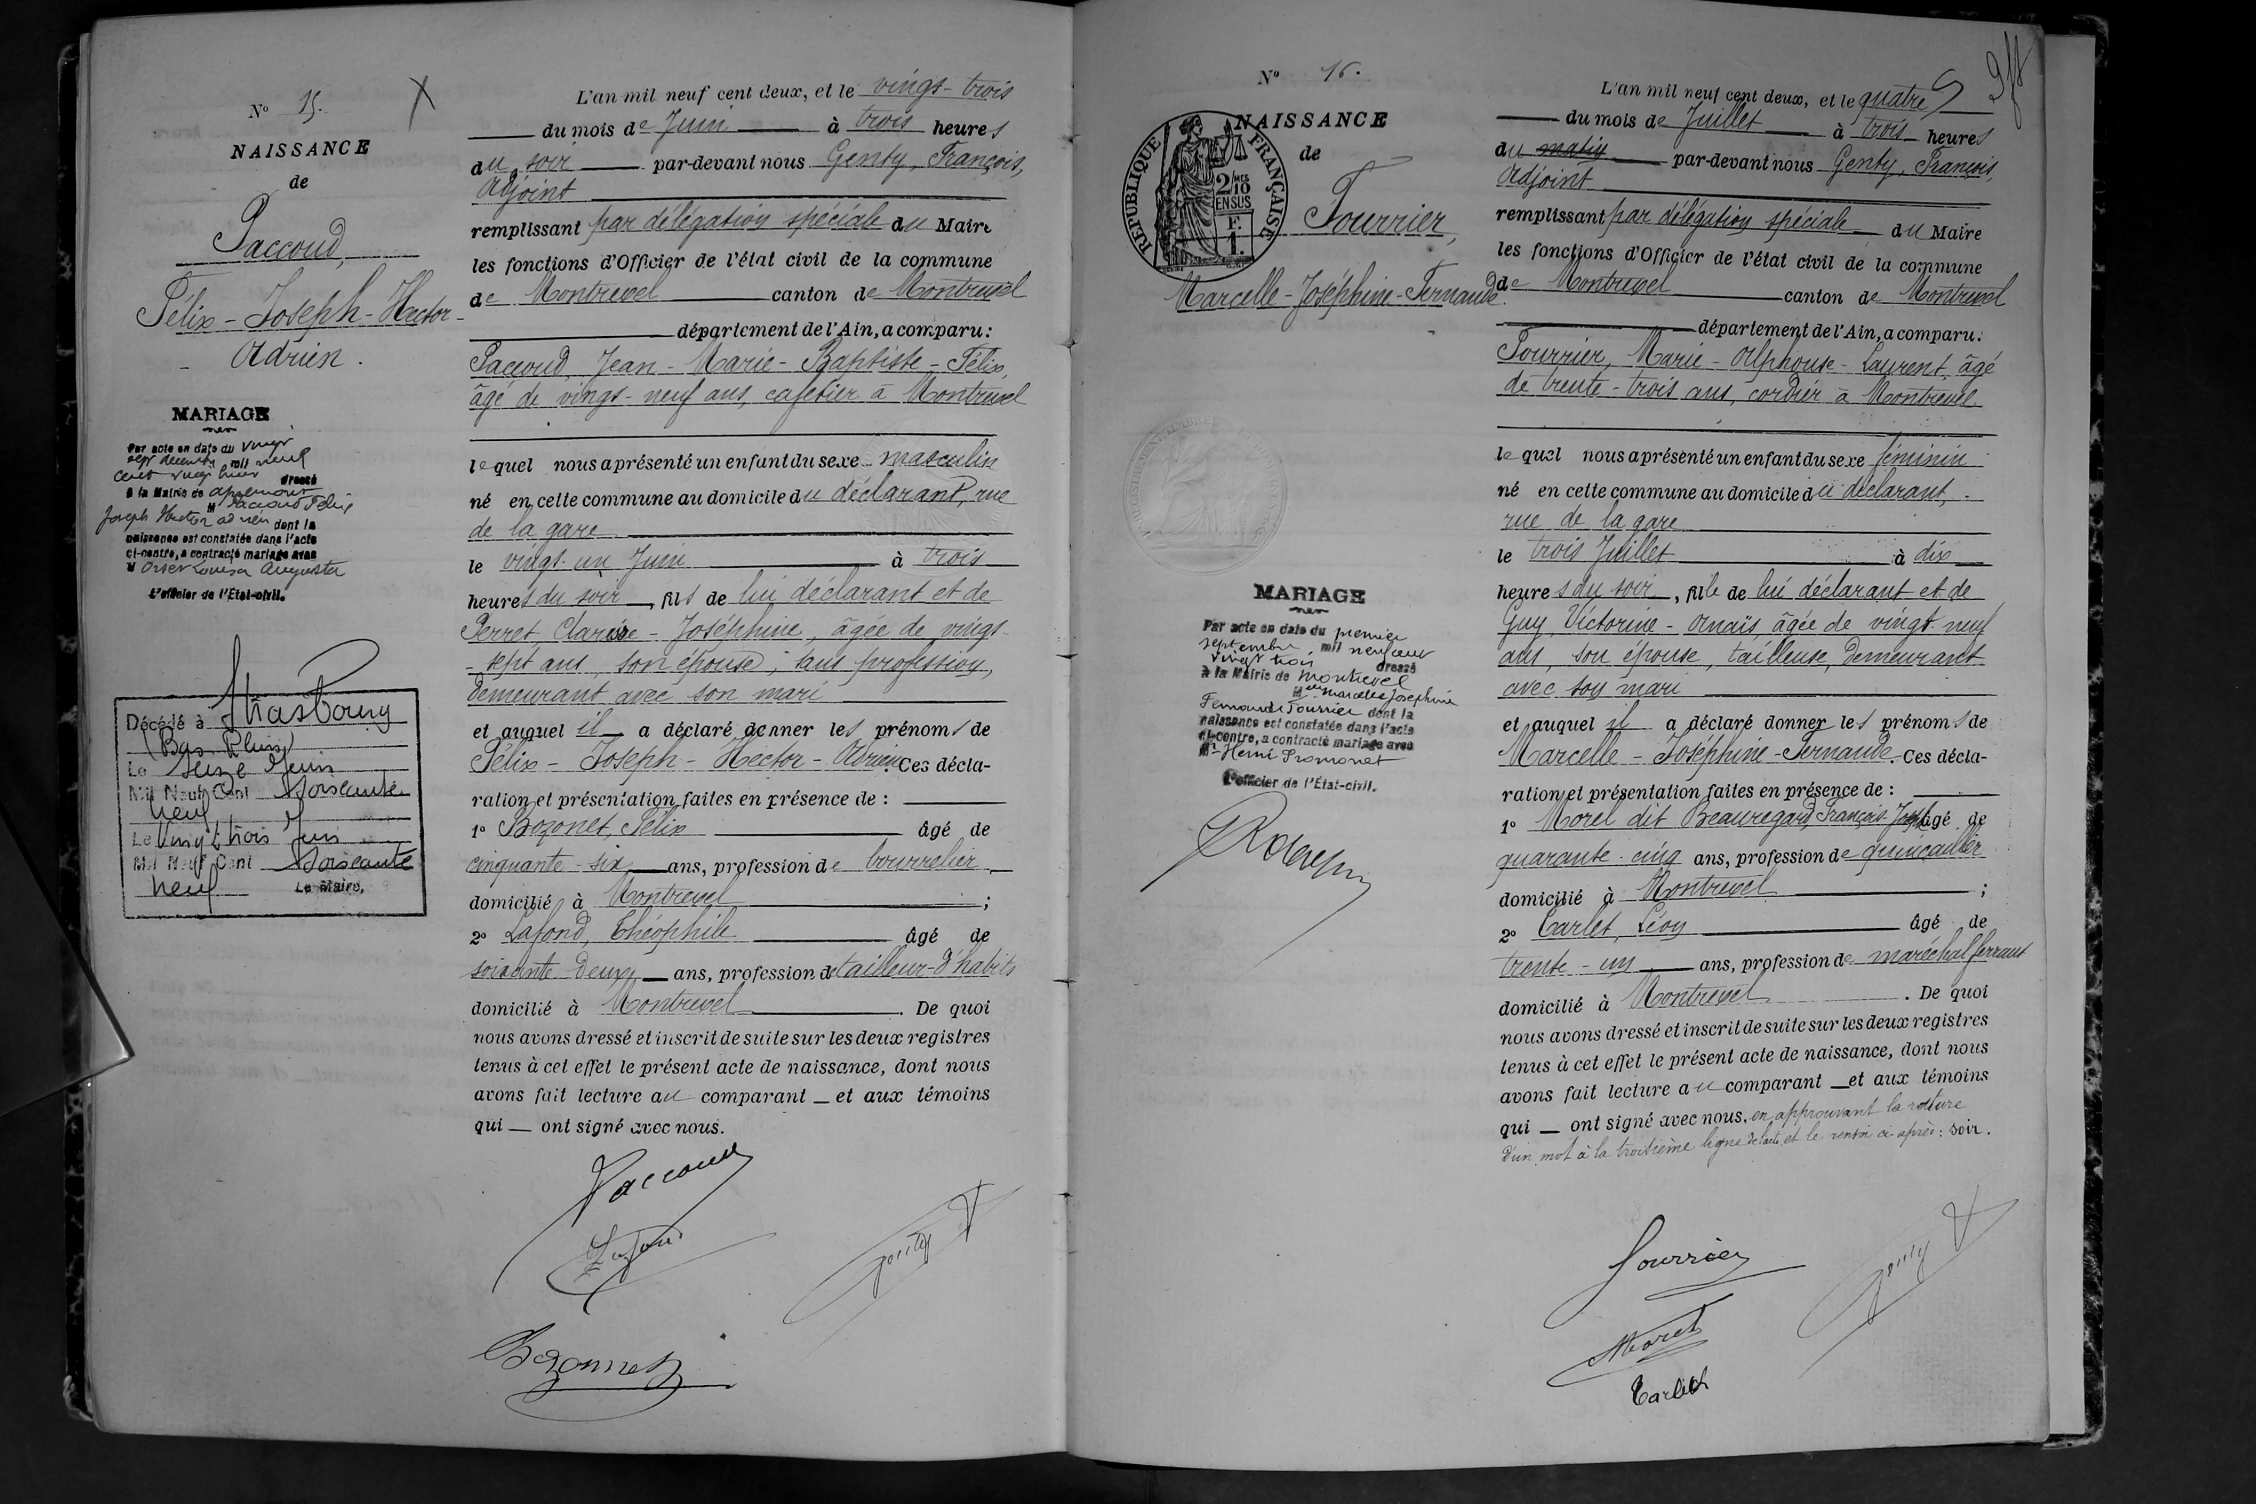 N° 15.
NAISSANCE
de
Paccoud,
Félix - Joseph - Hector -
- Adrien.
MARIAGE
Par acte en date du vingt
sept décembre mil neuf
cent vingt huit dressé
à la Mairie de Apremont
M Paccoud Félix
Joseph Hector Adrien dont la
naissance est constatée dans l'acte
ci-contre, a contracté mariage avec
M Louisa Augusta
L'officier de l'État-civil.
Décédé à Strasbourg
(Bas Rhin)
Le Seize Juin
Mil Neuf Cent Soixante
neuf
Le Vingt trois Juin
Mil Neuf Cent Soixante
neuf Le Maire,
L'an mil neuf cent deux, et le vingt-trois
du mois de Juin à trois heures
du soir par-devant nous Genty, François,
Adjoint
remplissant par délégation spéciale du Maire
les fonctions d'Officier de l'état civil de la commune
de Montrevel canton de Montrevel
département de l'Ain, a comparu:
Paccoud, Jean - Marie - Baptiste - Félix,
âgé de vingt-neuf ans, cafetier à Montrevel
lequel nous a présenté un enfant du sexe masculin
né en cette commune au domicile du déclarant, rue
de la gare
le vingt-un Juin à trois
heures du soir, fils de lui déclarant et de
Perret Clarisse - Joséphine, âgée de vingt-
- sept ans, son épouse, sans profession,
demeurant avec son mari
et auquel il a déclaré donner les prénoms de
Félix - Joseph - Hector - Adrien. Ces décla-
ration et présentation faites en présence de :
1° Bozonet, Félix âgé de
cinquante-six ans, profession de bourrelier
domicilié à Montrevel ;
2° Lafond, Théophile âgé de
soixante-deux ans, profession de tailleur-d'habits
domicilié à Montrevel . De quoi
nous avons dressé et inscrit de suite sur les deux registres
tenus à cet effet le présent acte de naissance, dont nous
avons fait lecture au comparant et aux témoins
qui ont signé avec nous.
Paccoud
Lafond
Genty
Bozonnet
N° 16.
NAISSANCE
de
REPUBLIQUE FRANÇAISE
2/10 MES
EN SUS
F.
1.
Fourrier,
Marcelle - Joséphine - Fernande.
MARIAGE
Par acte en date du premier
septembre mil neuf cent
vingt trois dressé
à la Mairie de Montrevel
Melle Marcelle Joséphine
Fernande Fourrier dont la
naissance est constatée dans l'acte
ci-contre, a contracté mariage avec
Mr Henri Fromonet
L'officier de l'État-civil.
L'an mil neuf cent deux, et le quatre
du mois de Juillet à trois heures
du matin par-devant nous Genty, François,
Adjoint
remplissant par délégation spéciale du Maire
les fonctions d'Officier de l'état civil de la commune
de Montrevel canton de Montrevel
département de l'Ain, a comparu:
Fourrier, Marie - Alphonse - Laurent, âgé
de trente-trois ans, cordier à Montrevel
lequel nous a présenté un enfant du sexe féminin
né en cette commune au domicile du déclarant,
rue de la gare
le trois Juillet à dix
heures du soir, fille de lui déclarant et de
Guy, Victorine - Anaïs, âgée de vingt-neuf
ans, son épouse, tailleuse, demeurant
avec son mari
et auquel il a déclaré donner les prénoms de
Marcelle - Joséphine - Fernande. Ces décla-
ration et présentation faites en présence de :
1° Morel dit Beauregard, François-Joseph âgé de
quarante-cinq ans, profession de quincaillier
domicilié à Montrevel ;
2° Carlet, Léon âgé de
trente-un ans, profession de maréchal ferrant
domicilié à Montrevel . De quoi
nous avons dressé et inscrit de suite sur les deux registres
tenus à cet effet le présent acte de naissance, dont nous
avons fait lecture au comparant et aux témoins
qui ont signé avec nous, en approuvant la rature
d'un mot à la troisième ligne de l'acte et le renvoi ci-après : soir.
Fourrier
Genty
Morel
Carlet